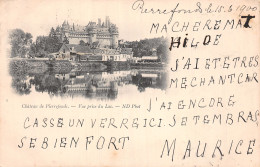 Pierrefonds le 15.6.1900
MACHEREMAT
HILDE
J'AIETETRES
MECHANTCAR
J'AIENCORE
CASSEUNVERREICI JETEMBRAS
SEBIENFORT
MAURICE
Château de Pierrefonds. — Vue prise du Lac. — ND Phot